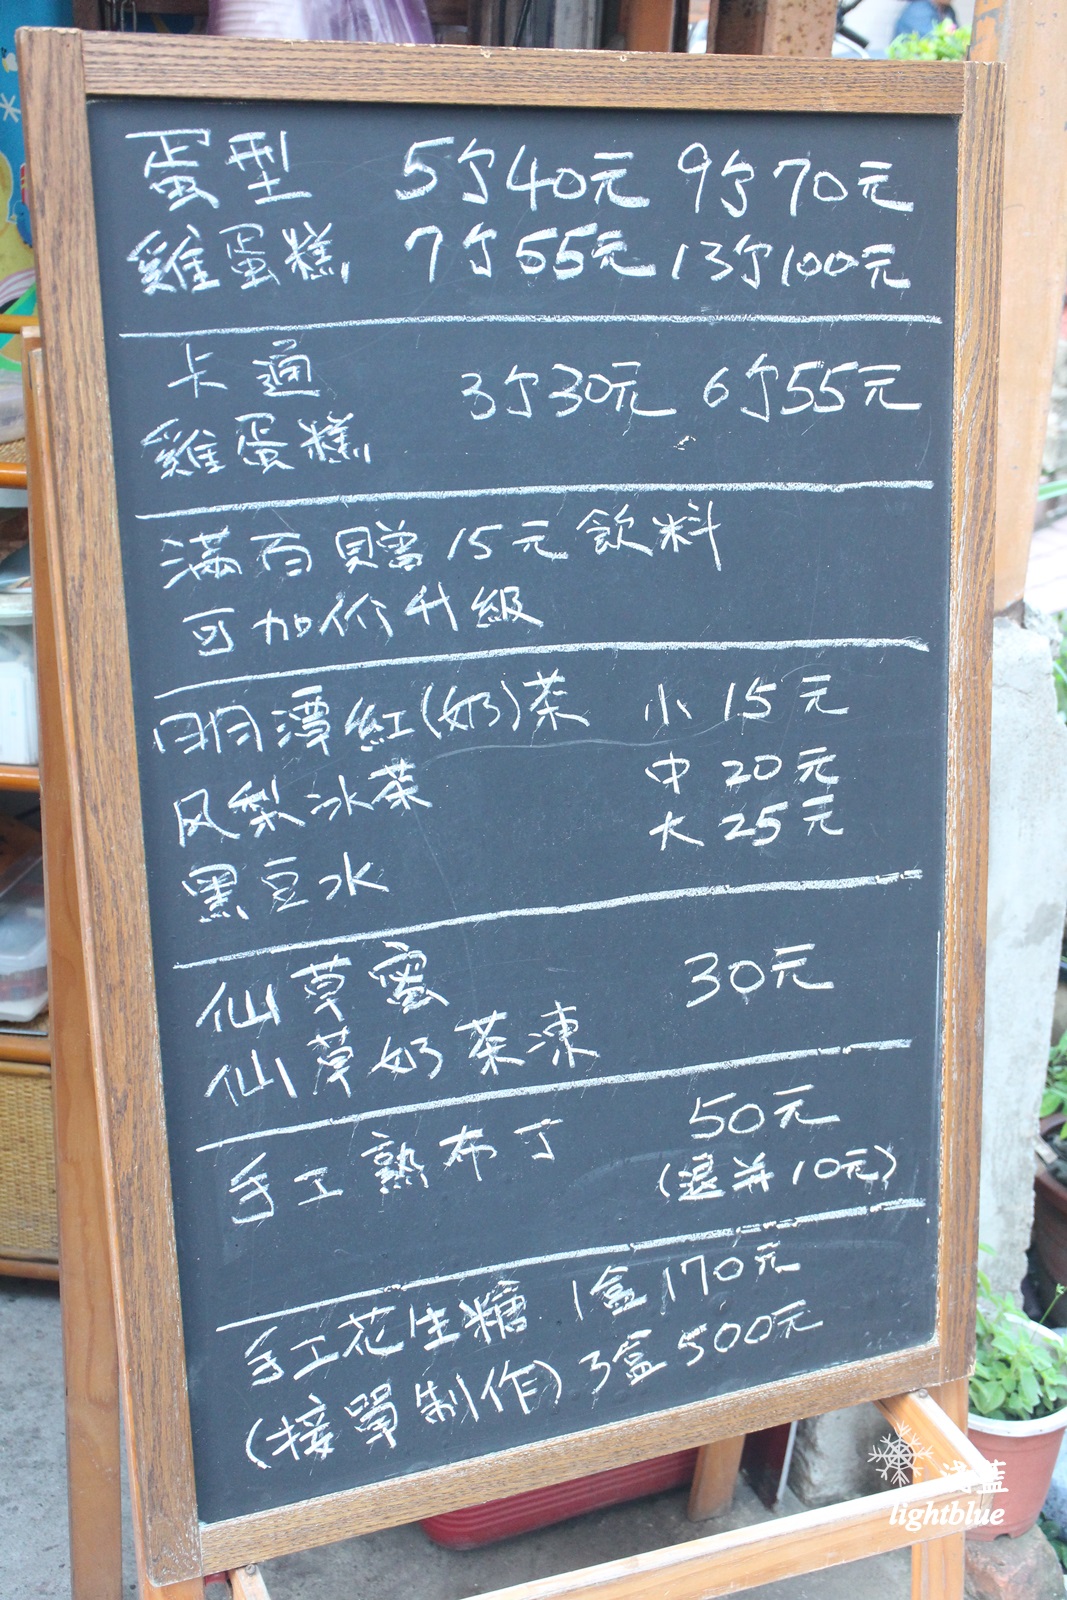 蛋型 5个40元 9个70元
雞蛋糕 7个55元 13个100元
卡通 3个30元 6个55元
雞蛋糕
滿百贈15元飲料
可加价升級
明潭紅(奶)茶 小 15元
风梨冰茶 中 20元
大 25元
黑豆水
仙草蜜 30元
仙草奶茶凍
手工熟布丁 50元
(退并10元)
手工花生糖 1盒170元
(接單制作) 3盒500元
淺藍
lightblue